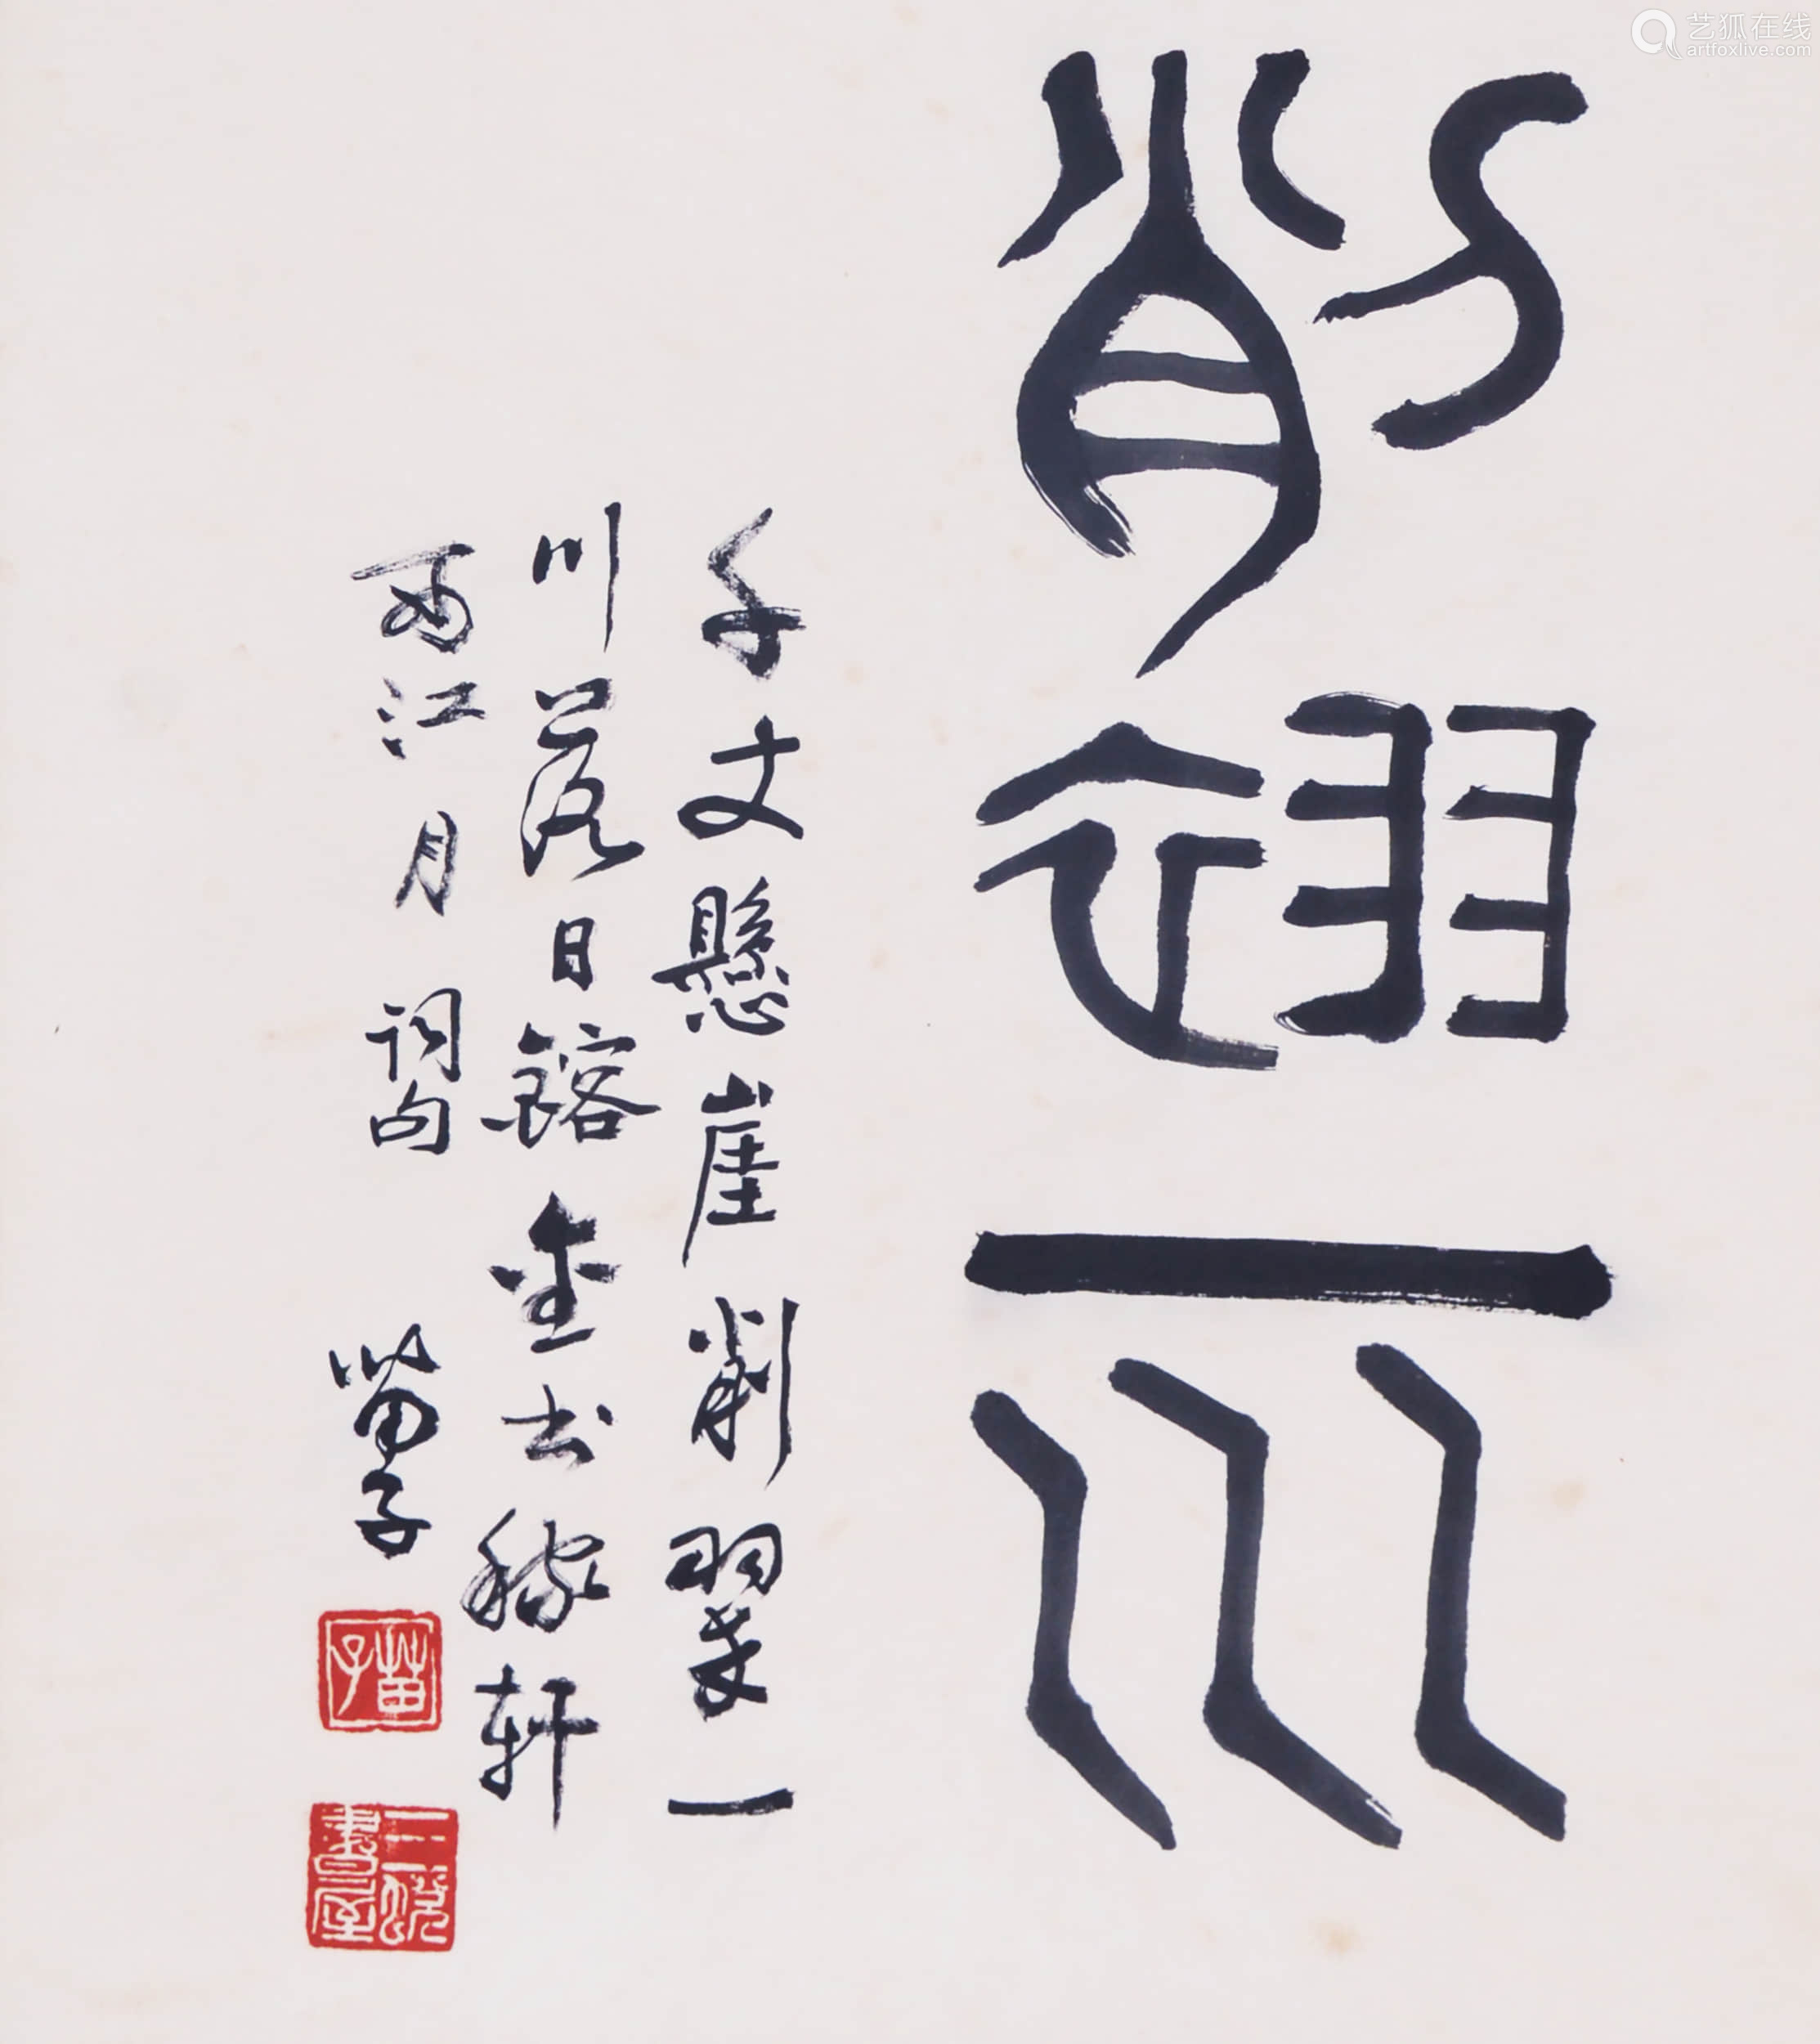 削翠一川
千丈懸崖削翠一
川落日鎔金書稼軒
西江月詞句
苗子
苗子
書屋
艺狐在线
artfoxlive.com